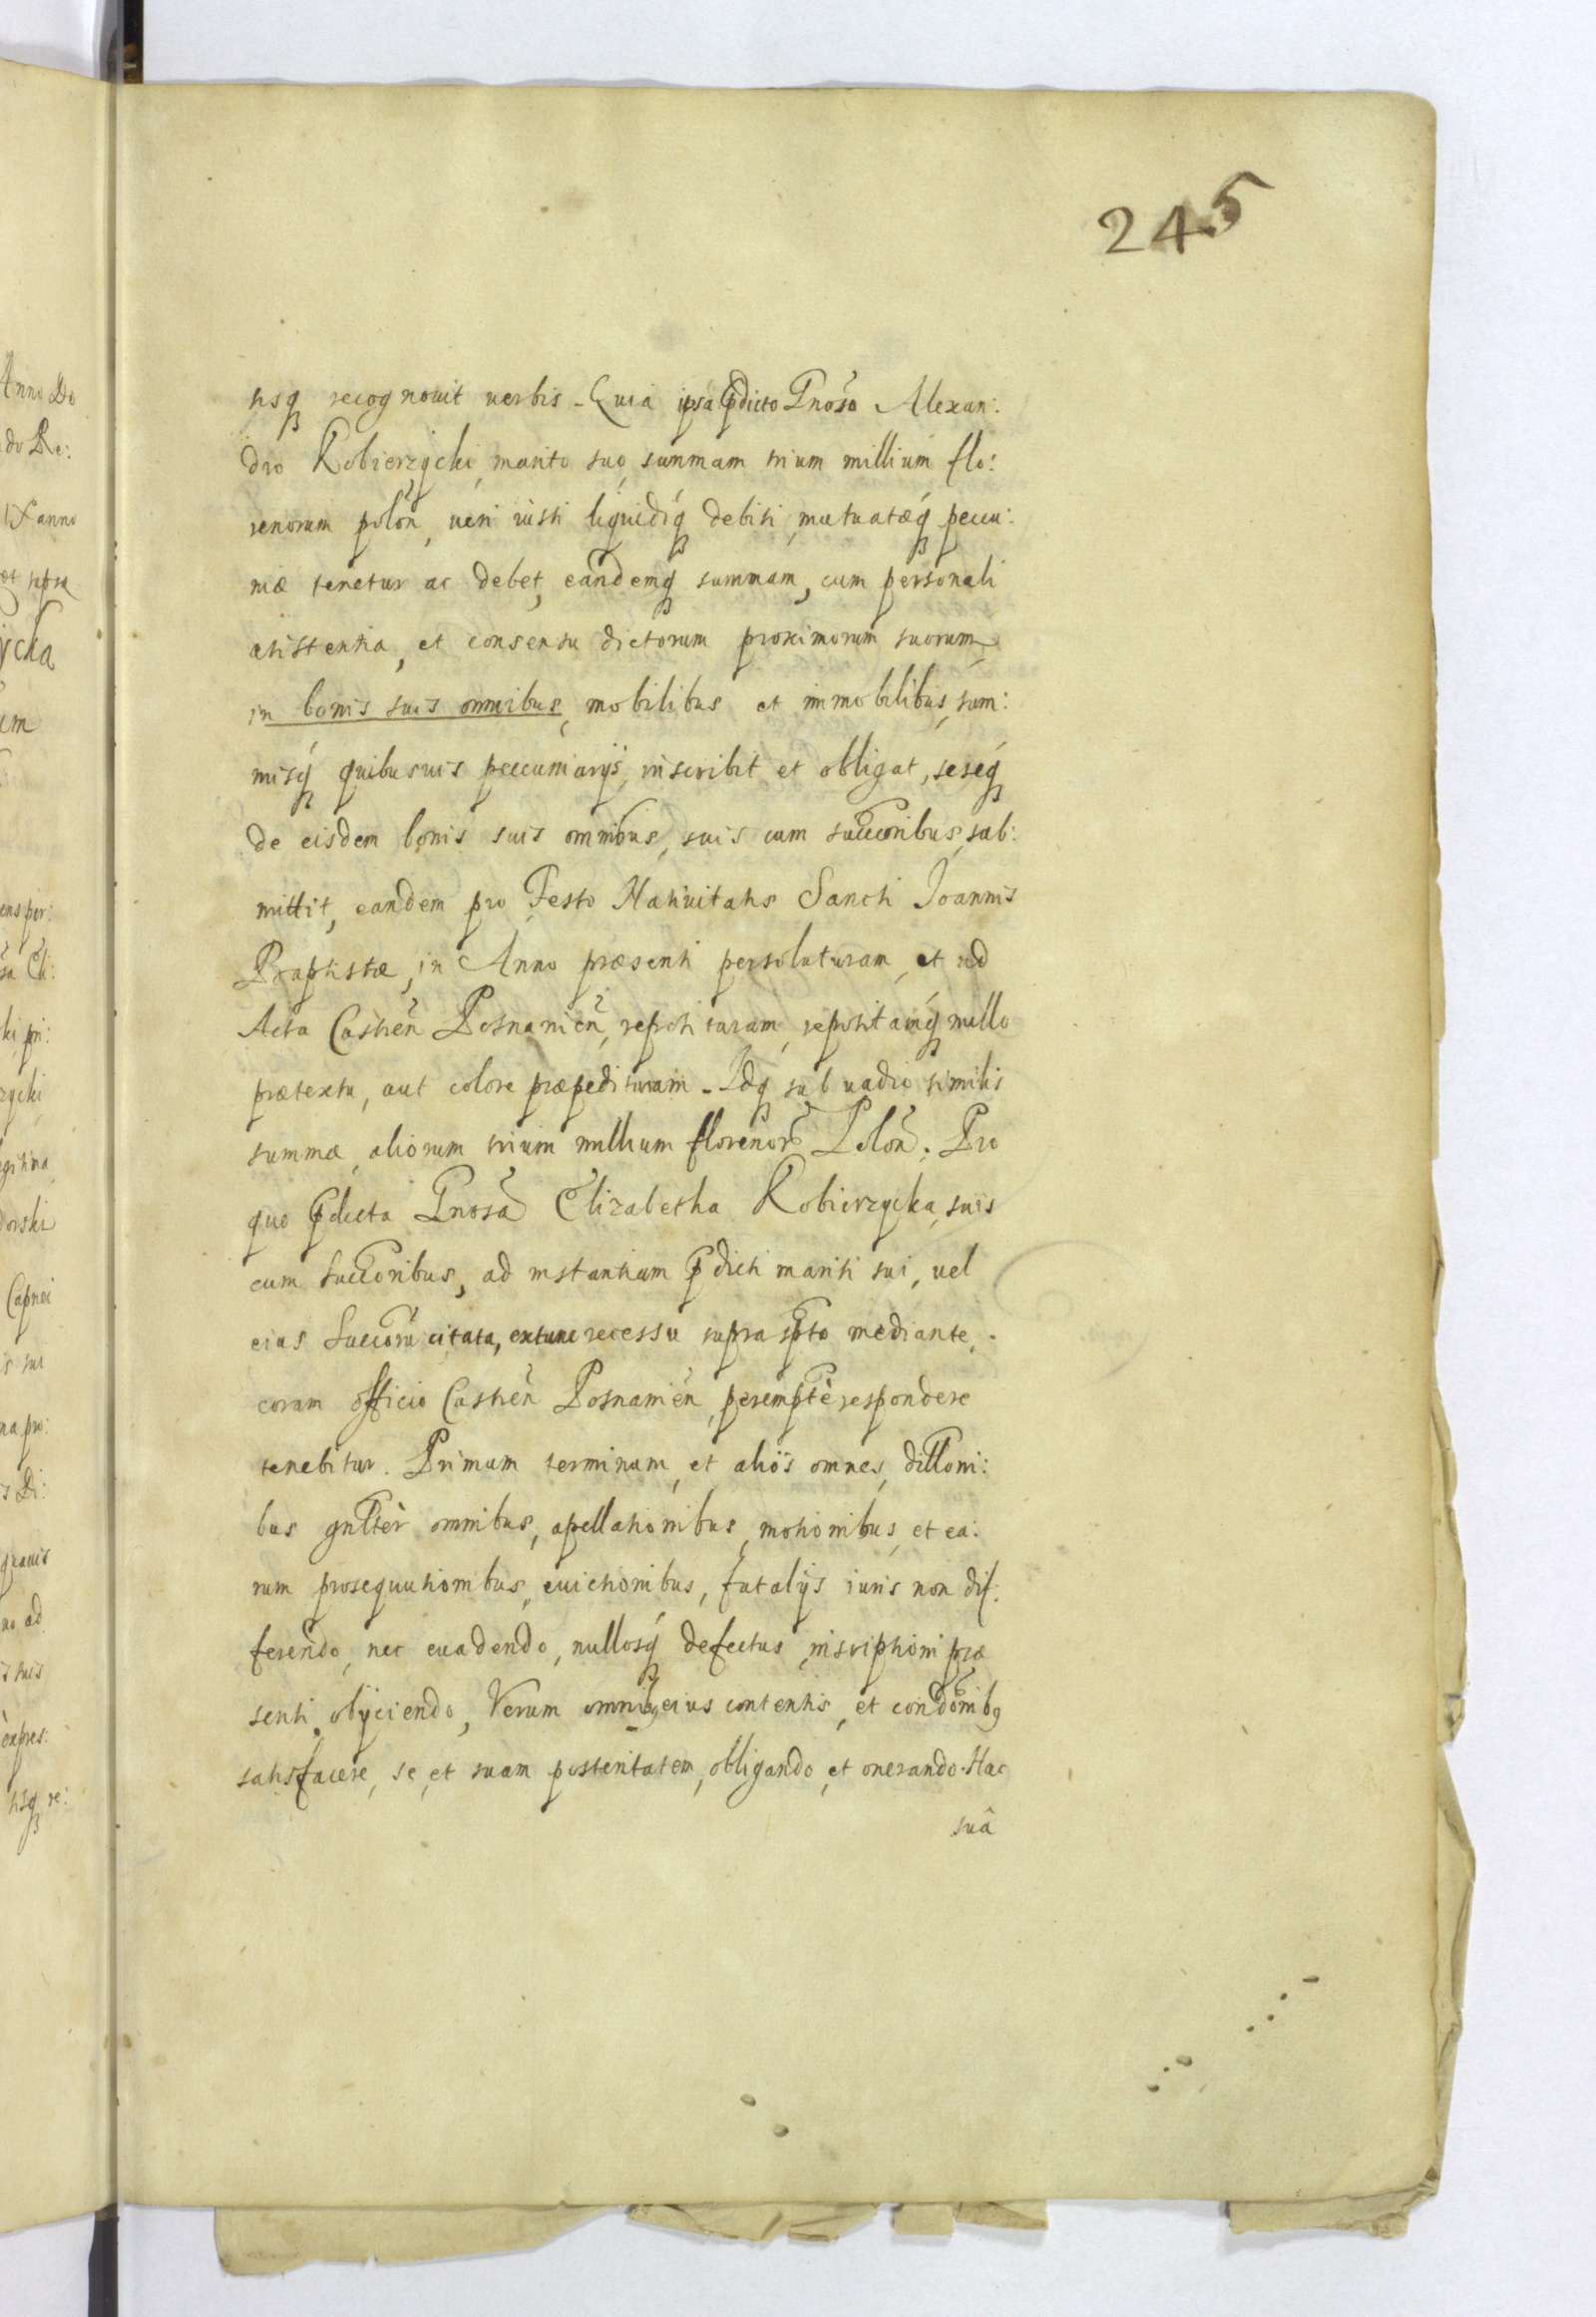 245
tisq recognouit uerbis - Quia ipsa pdicto Gnoso Alexan:
dro Kobierzycki, marito suo, summam trium millium flo:
renorum polon, ueri iusti liquidiq debiti, mutuatæq pecu:
niæ tenetur ac debet, eandemq summam, cum personali
assistentia, et consensu dictorum proximorum suorum,
in bonis suis omnibus, mobilibus et immobilibus, sum:
misq quibusuis peccuniarijs, inscribit et obligat, seseq
de eisdem bonis suis omnibus, suis cum succoribus, sub:
mittit, eandem pro Festo Natiuitatis Sancti Joannis
Baptistæ, in Anno præsenti persoluturam, et ad
Acta Castren Posnanien, reposituram, repositamq nullo
prætextu, aut colore præpedituram - Idq sub uadio similis
summæ, aliorum trium millium florenor Polon. Pro
quo pdicta Gnosa Elizabetha Kobierzycka, suis
cum succoribus, ad instantiam pdicti mariti sui, uel
eius succoru citata, extunc recessu supra spto mediante,
coram officio Castren Posnanien, peremptè respondere
tenebitur. Primum terminum, et alios omnes, dilloni:
bus gnlter omnibus, apellationibus, motionibus, et ea:
rum prosequutionibus, euictionibus, fatalijs iuris non dif:
ferendo, nec euadendo, nullosq defectus, inscriptioni præ
senti, obijciendo, Verum omnibq eius contentis, et condonibq
satisfacere, se, et suam posteritatem, obligando, et onerando. Hac
suâ
Anno Do
do Re:
anno
et ipsa
ycka
um
ens per:
sa Eli:
ki, pri:
zycki
gitima
orski
Capnei
is sui
na pro:
s Di:
quauis
no ad
s suis
expres:
tisq re: